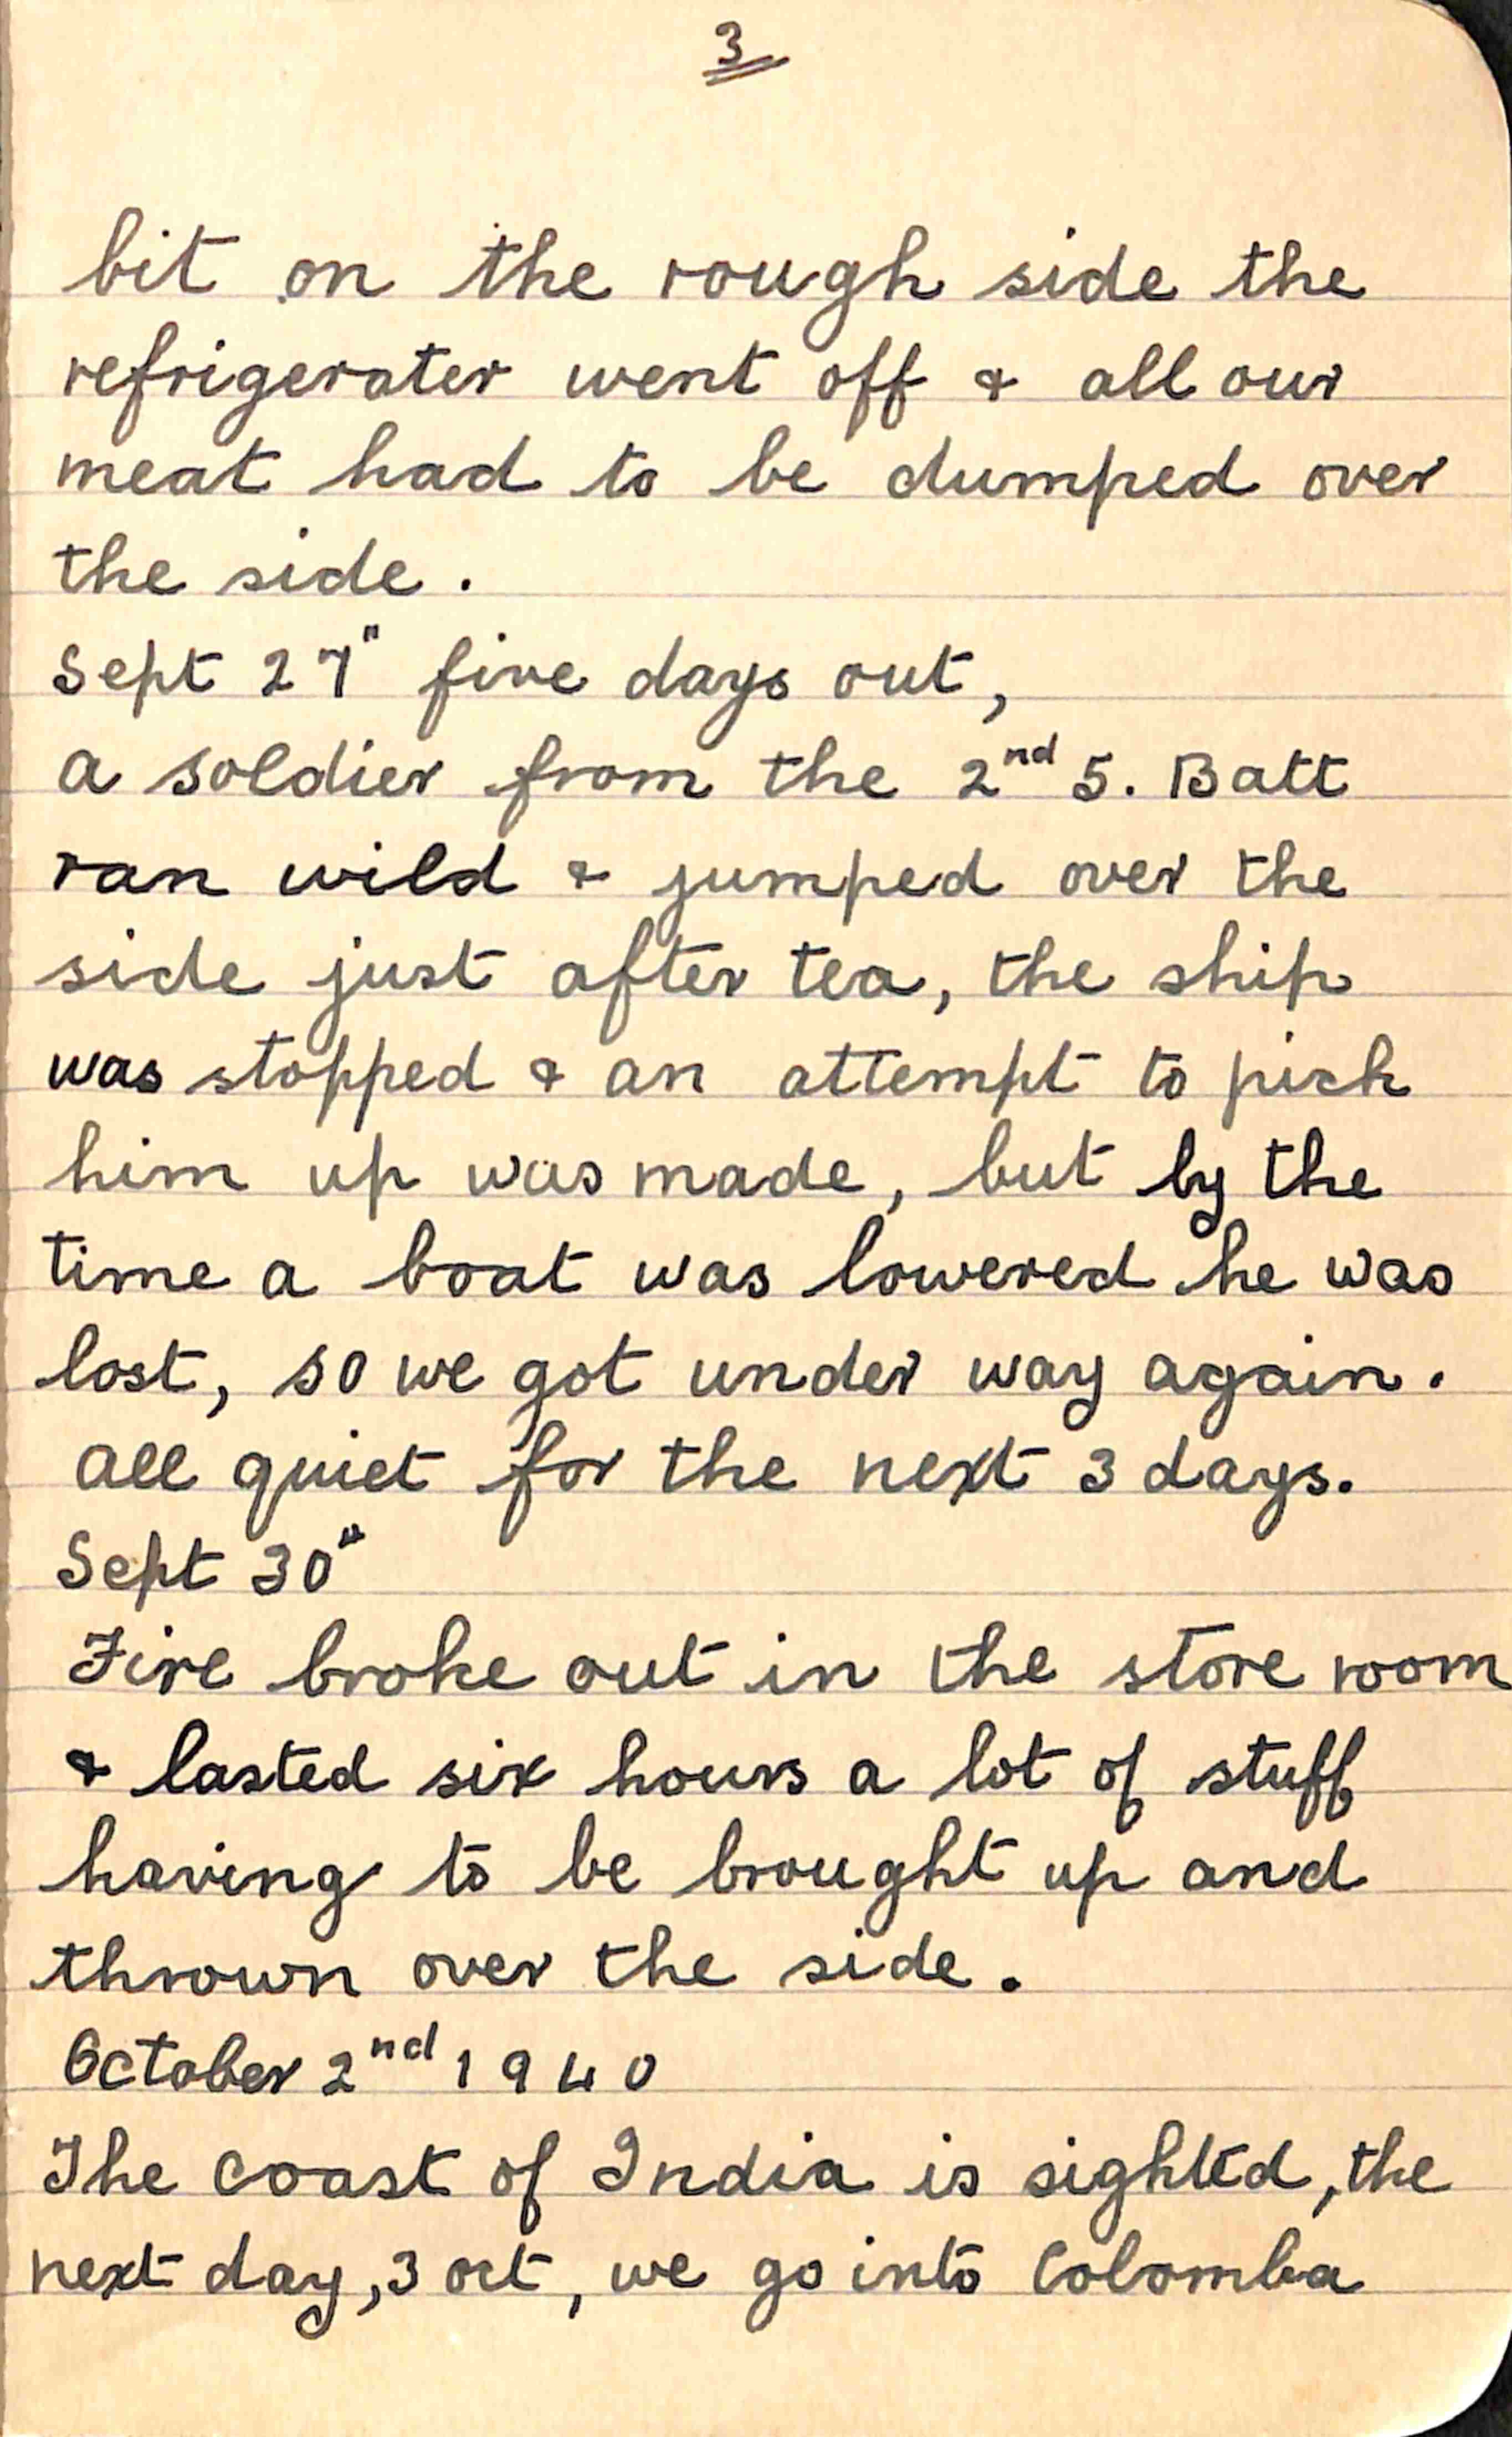 3
bit on the rough side the
refrigerater went off & all our
meat had to be dumped over
the side.
Sept 27" five days out,
a soldier from the 2nd 5. Batt
ran wild & jumped over the
side just after tea, the ship
was stopped & an attempt to pick
him up was made, but by the
time a boat was lowered he was
lost, so we got under way again.
all quiet for the next 3 days.
Sept 30"
Fire broke out in the store room
& lasted six hours a lot of stuff
having to be brought up and
thrown over the side.
October 2nd 1940
The coast of India is sighted, the
next day, 3 oct, we go into Colomba